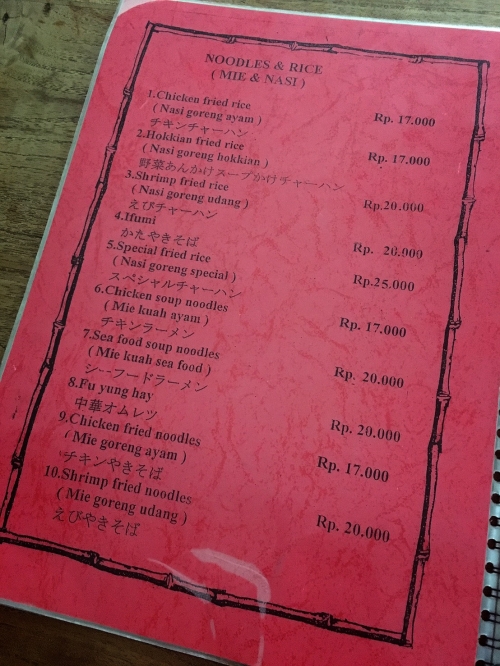 NOODLES & RICE
( MIE & NASI )
1.Chicken fried rice
( Nasi goreng ayam ) Rp. 17.000
チキンチャーハン
2.Hokkian fried rice
( Nasi goreng hokkian ) Rp. 17.000
野菜あんかけスープかけチャーハン
3.Shrimp fried rice
( Nasi goreng udang ) Rp.20.000
えびチャーハン
4.Ifumi Rp. 20.000
かたやきそば
5.Special fried rice
( Nasi goreng special ) Rp.25.000
スペシャルチャーハン
6.Chicken soup noodles
( Mie kuah ayam ) Rp. 17.000
チキンラーメン
7.Sea food soup noodles
( Mie kuah sea food ) Rp. 20.000
シーフードラーメン
8.Fu yung hay Rp. 20.000
中華オムレツ
9.Chicken fried noodles
( Mie goreng ayam ) Rp. 17.000
チキンやきそば
10.Shrimp fried noodles
( Mie goreng udang ) Rp. 20.000
えびやきそば